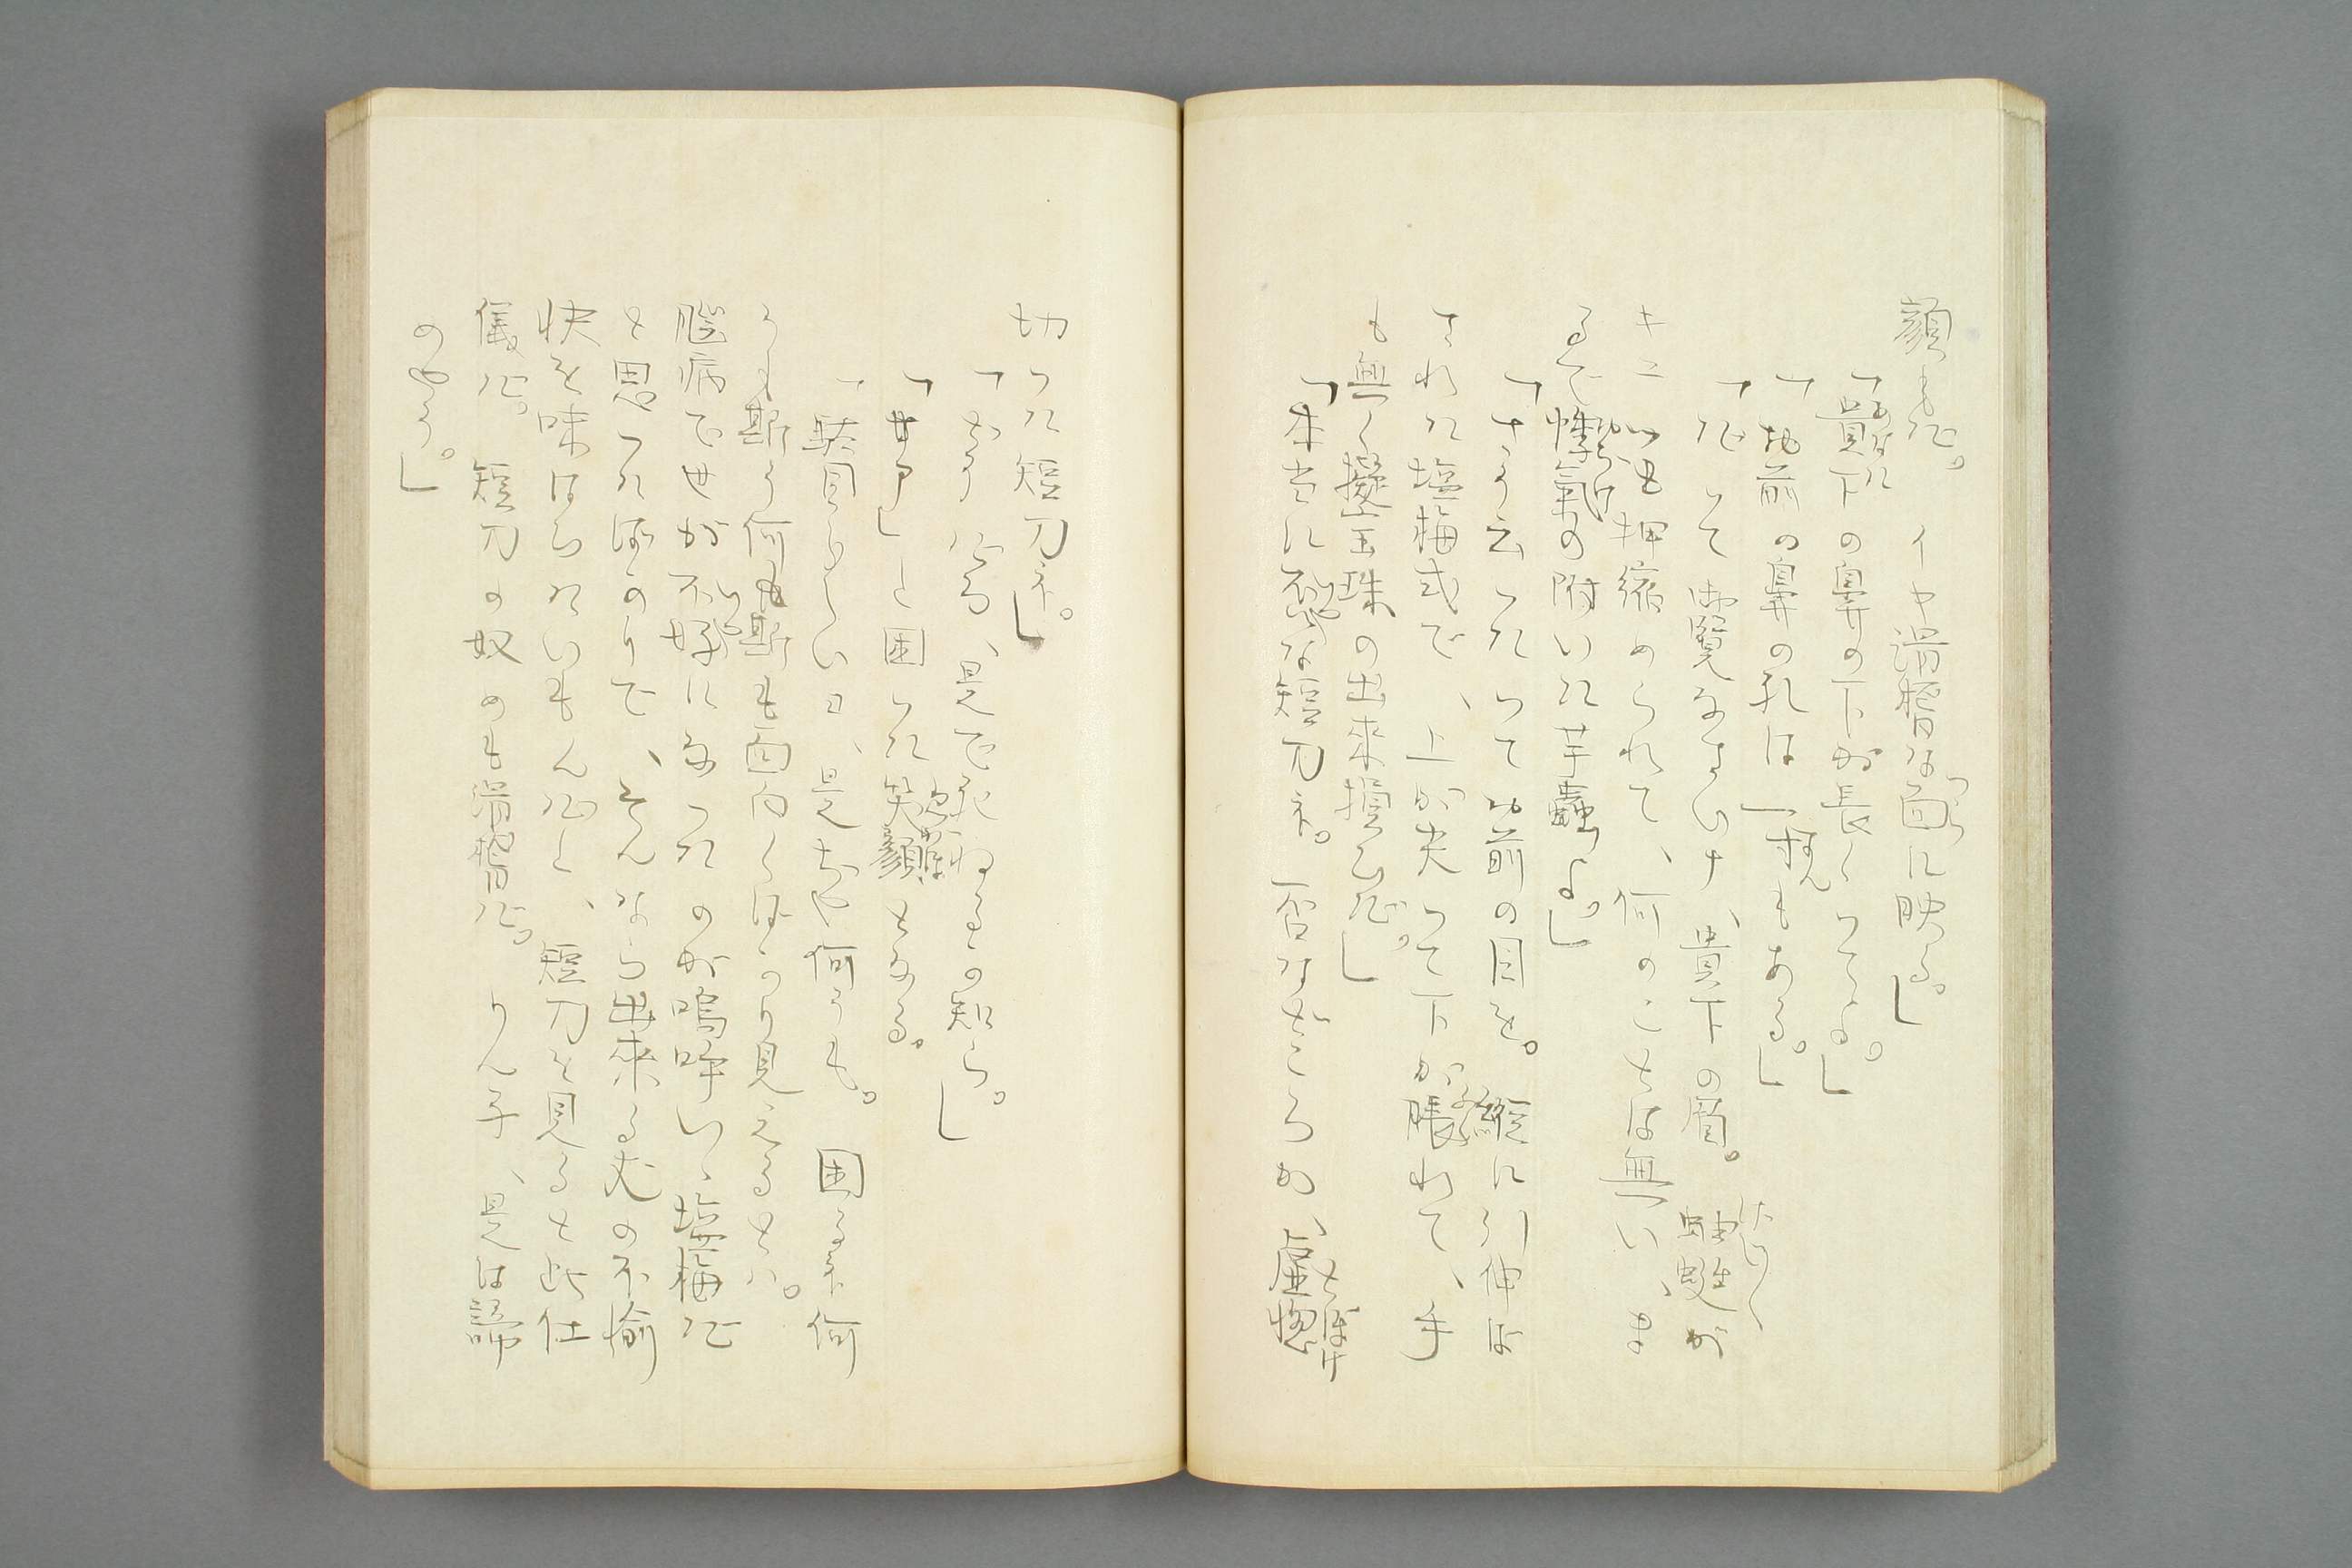 顔もだ。　イヤ滑稽な面に映る。」
「貴下の鼻の下が長くつてよ。」
「お前の鼻の孔は一打もある。」
「だつて御覧なさいナ、貴下の眉。　蚰蜒が
キユツと押縮められて、何のことは無い　ま
るで悸氣の附いた芋蟲よ。」
「さう云つたつてお前の目を。縦に引伸ば
された塩梅式で、上が尖つて下が脹れて、手
も無く擬宝珠の出来損ひだ。」
「本当に不思な短刀ネ。　否なところか、虚惚
切つた短刀ネ。」
「さうだろ、是で死ねるの知ら。」
「サア」と困つた笑顔となる。
「駄目らしいヨ、是ぢや何うも。　困るネ何
うも斯う何も斯も面白くばかり見えるとハ。
脳病でせが不好になつたのが嗚呼いゝ塩梅だ
と思つたばかりで、そんなら出来る丈の不愉
快を味はらたいもんだと、短刀を見ると此仕
儀だ。　短刀の奴めも滑稽だ。　りん子、是は諦
のやう。」